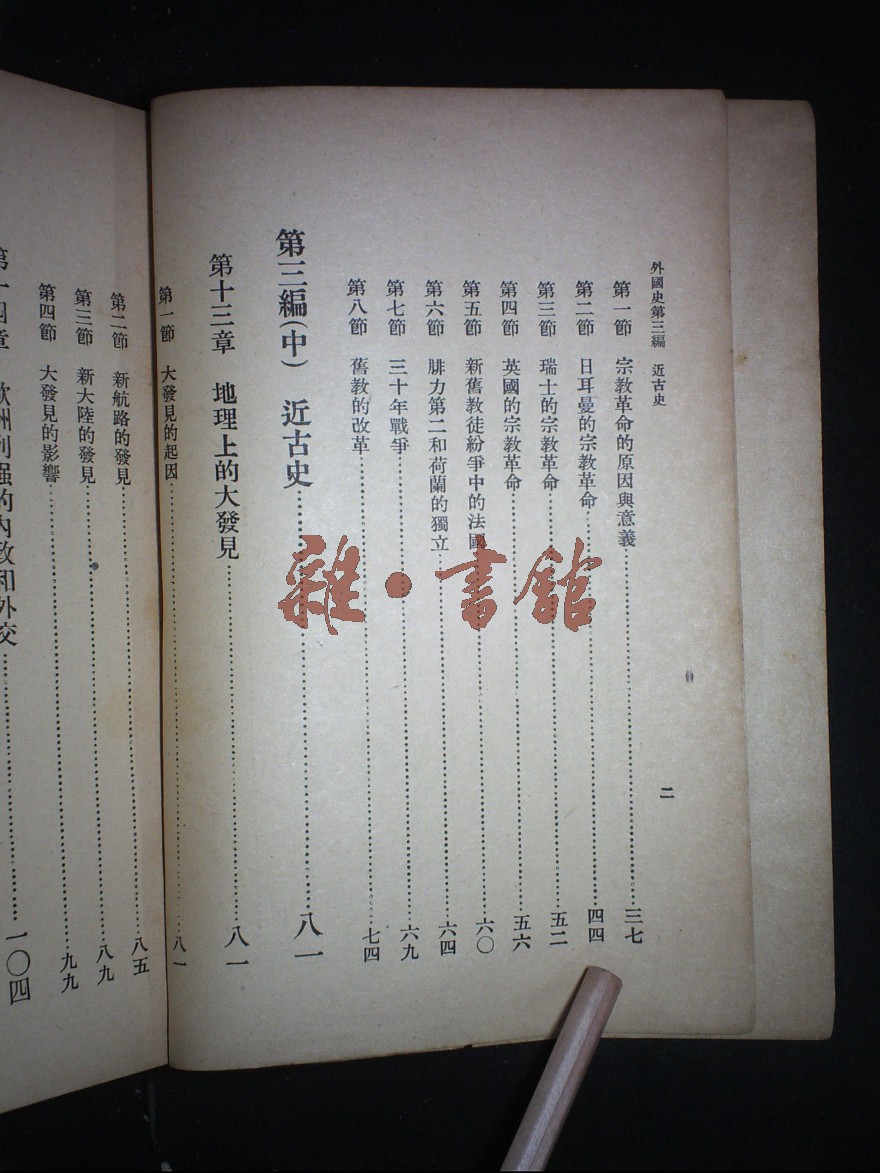 外國史第三編　近古史
二
第一節　宗教革命的原因與意義……三七
第二節　日耳曼的宗教革命……四四
第三節　瑞士的宗教革命……五二
第四節　英國的宗教革命……五六
第五節　新舊教徒紛爭中的法國……六〇
第六節　腓力第二和荷蘭的獨立……六四
第七節　三十年戰爭……六九
第八節　舊教的改革……七四
第三編(中)　近古史……八一
第十三章　地理上的大發見……八一
第一節　大發見的起因……八一
第二節　新航路的發見……八五
第三節　新大陸的發見……八九
第四節　大發見的影響……九九
第十四章　歐洲列强的內政和外交……一〇四
雜·書館